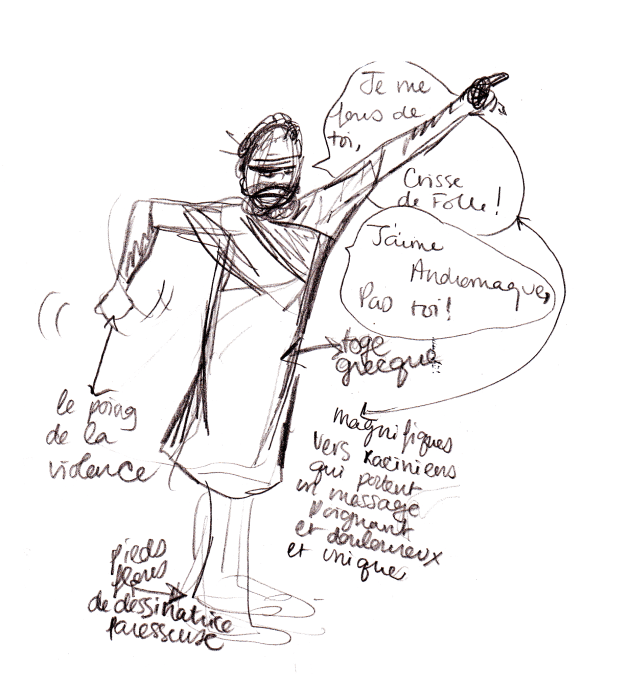 Je me
fous de
toi,
Crisse
de Folle!
J'aime
Andromaque,
Pas toi!
toge
grecque
le poing
de la
violence
magnifiques
vers raciniens
qui portent
un message
Poignant
et douloureux
et unique
pieds
flous
de dessinatrice
paresseuse